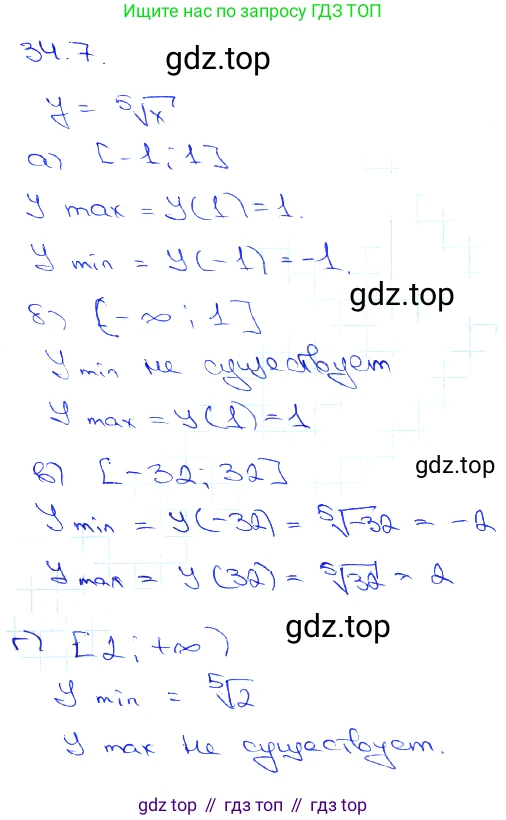 Ищите нас по запросу ГДЗ ТОП
34.7. gdz.top
y = ⁵√x
а) [-1; 1]
y max = y(1) = 1.
y min = y(-1) = -1.
gdz.top
б) (-∞; 1]
y min не существует
y max = y(1) = 1
в) [-32; 32]
gdz.top
y min = y(-32) = ⁵√-32 = -2
y max = y(32) = ⁵√32 = 2
gdz.top
г) [2; +∞)
y min = ⁵√2
y max не существует.
gdz top // гдз топ // гдз.top